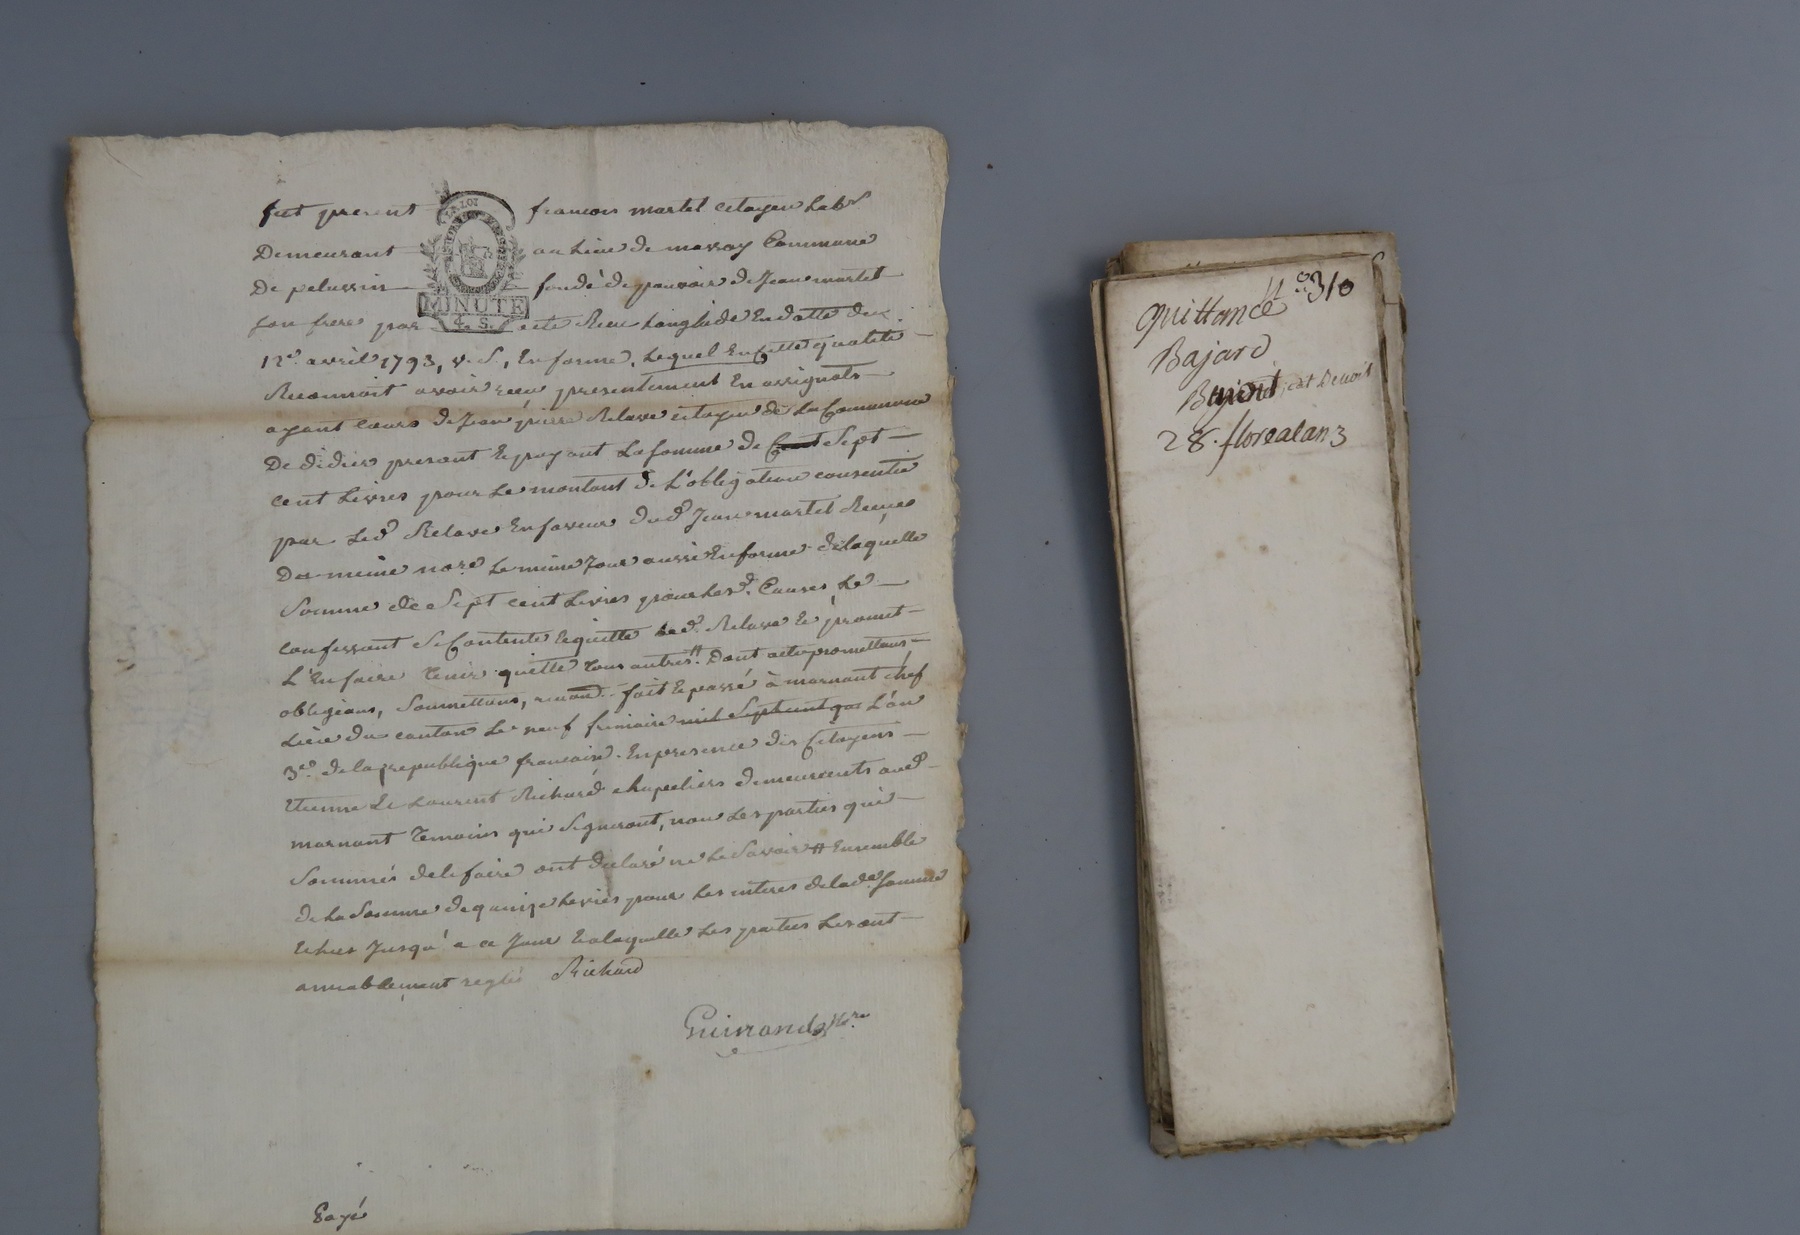 fut present françois martel citoyen Lab.r
LA LOI
Demeurant au Lieu de Commune
De pelussin fondé de pouvoir de Jean martel
MINUTE
son frere par acte Recu Langlade En datte du
4. S.
12.e avril 1793, v. S., En forme, Lequel En Cette qualité
Reconnoit avoir recu presentement En assignats
ayant Cours de Jean pierre Relave citoyen de La Commune
De didier present Et payant La Somme de Cent Sept
cent Livres pour Le montant de L'obligation consentie
par Led. Relave En faveur dud. Jean martel Recue
Du meme no.re Le meme Jour aussi En forme de laquelle
Somme de Sept cent Livres pour Les d. Causes, Le
confessant Se Contente Et quitte Led. Relave Et promet
L'En faire Tenir quitte Tous autres. Dont acte promettans
obligeans, Soumettans, renonc. fait Et passé à mornant chef
Lieu du canton Le neuf frimaire mil Sept cent qa L'an
3.e de la republique francaise. En presence des Citoyens
Etienne Et Laurent Richard chapeliers demeurants aud.
mornant Temoins qui Signeront, non Les parties qui
Sommés de le faire ont declaré ne Le Savoir # Ensemble
de La Somme de quinze Livres pour Les interes de lad.e Somme
Echus Jusqu'a ce Jour Et a laquelle Les parties Les ont
amiablement reglés Richard
Guinand No.re
Payé
N.o 310
Quittance
Bajard
Benoit
28. floreal an 3